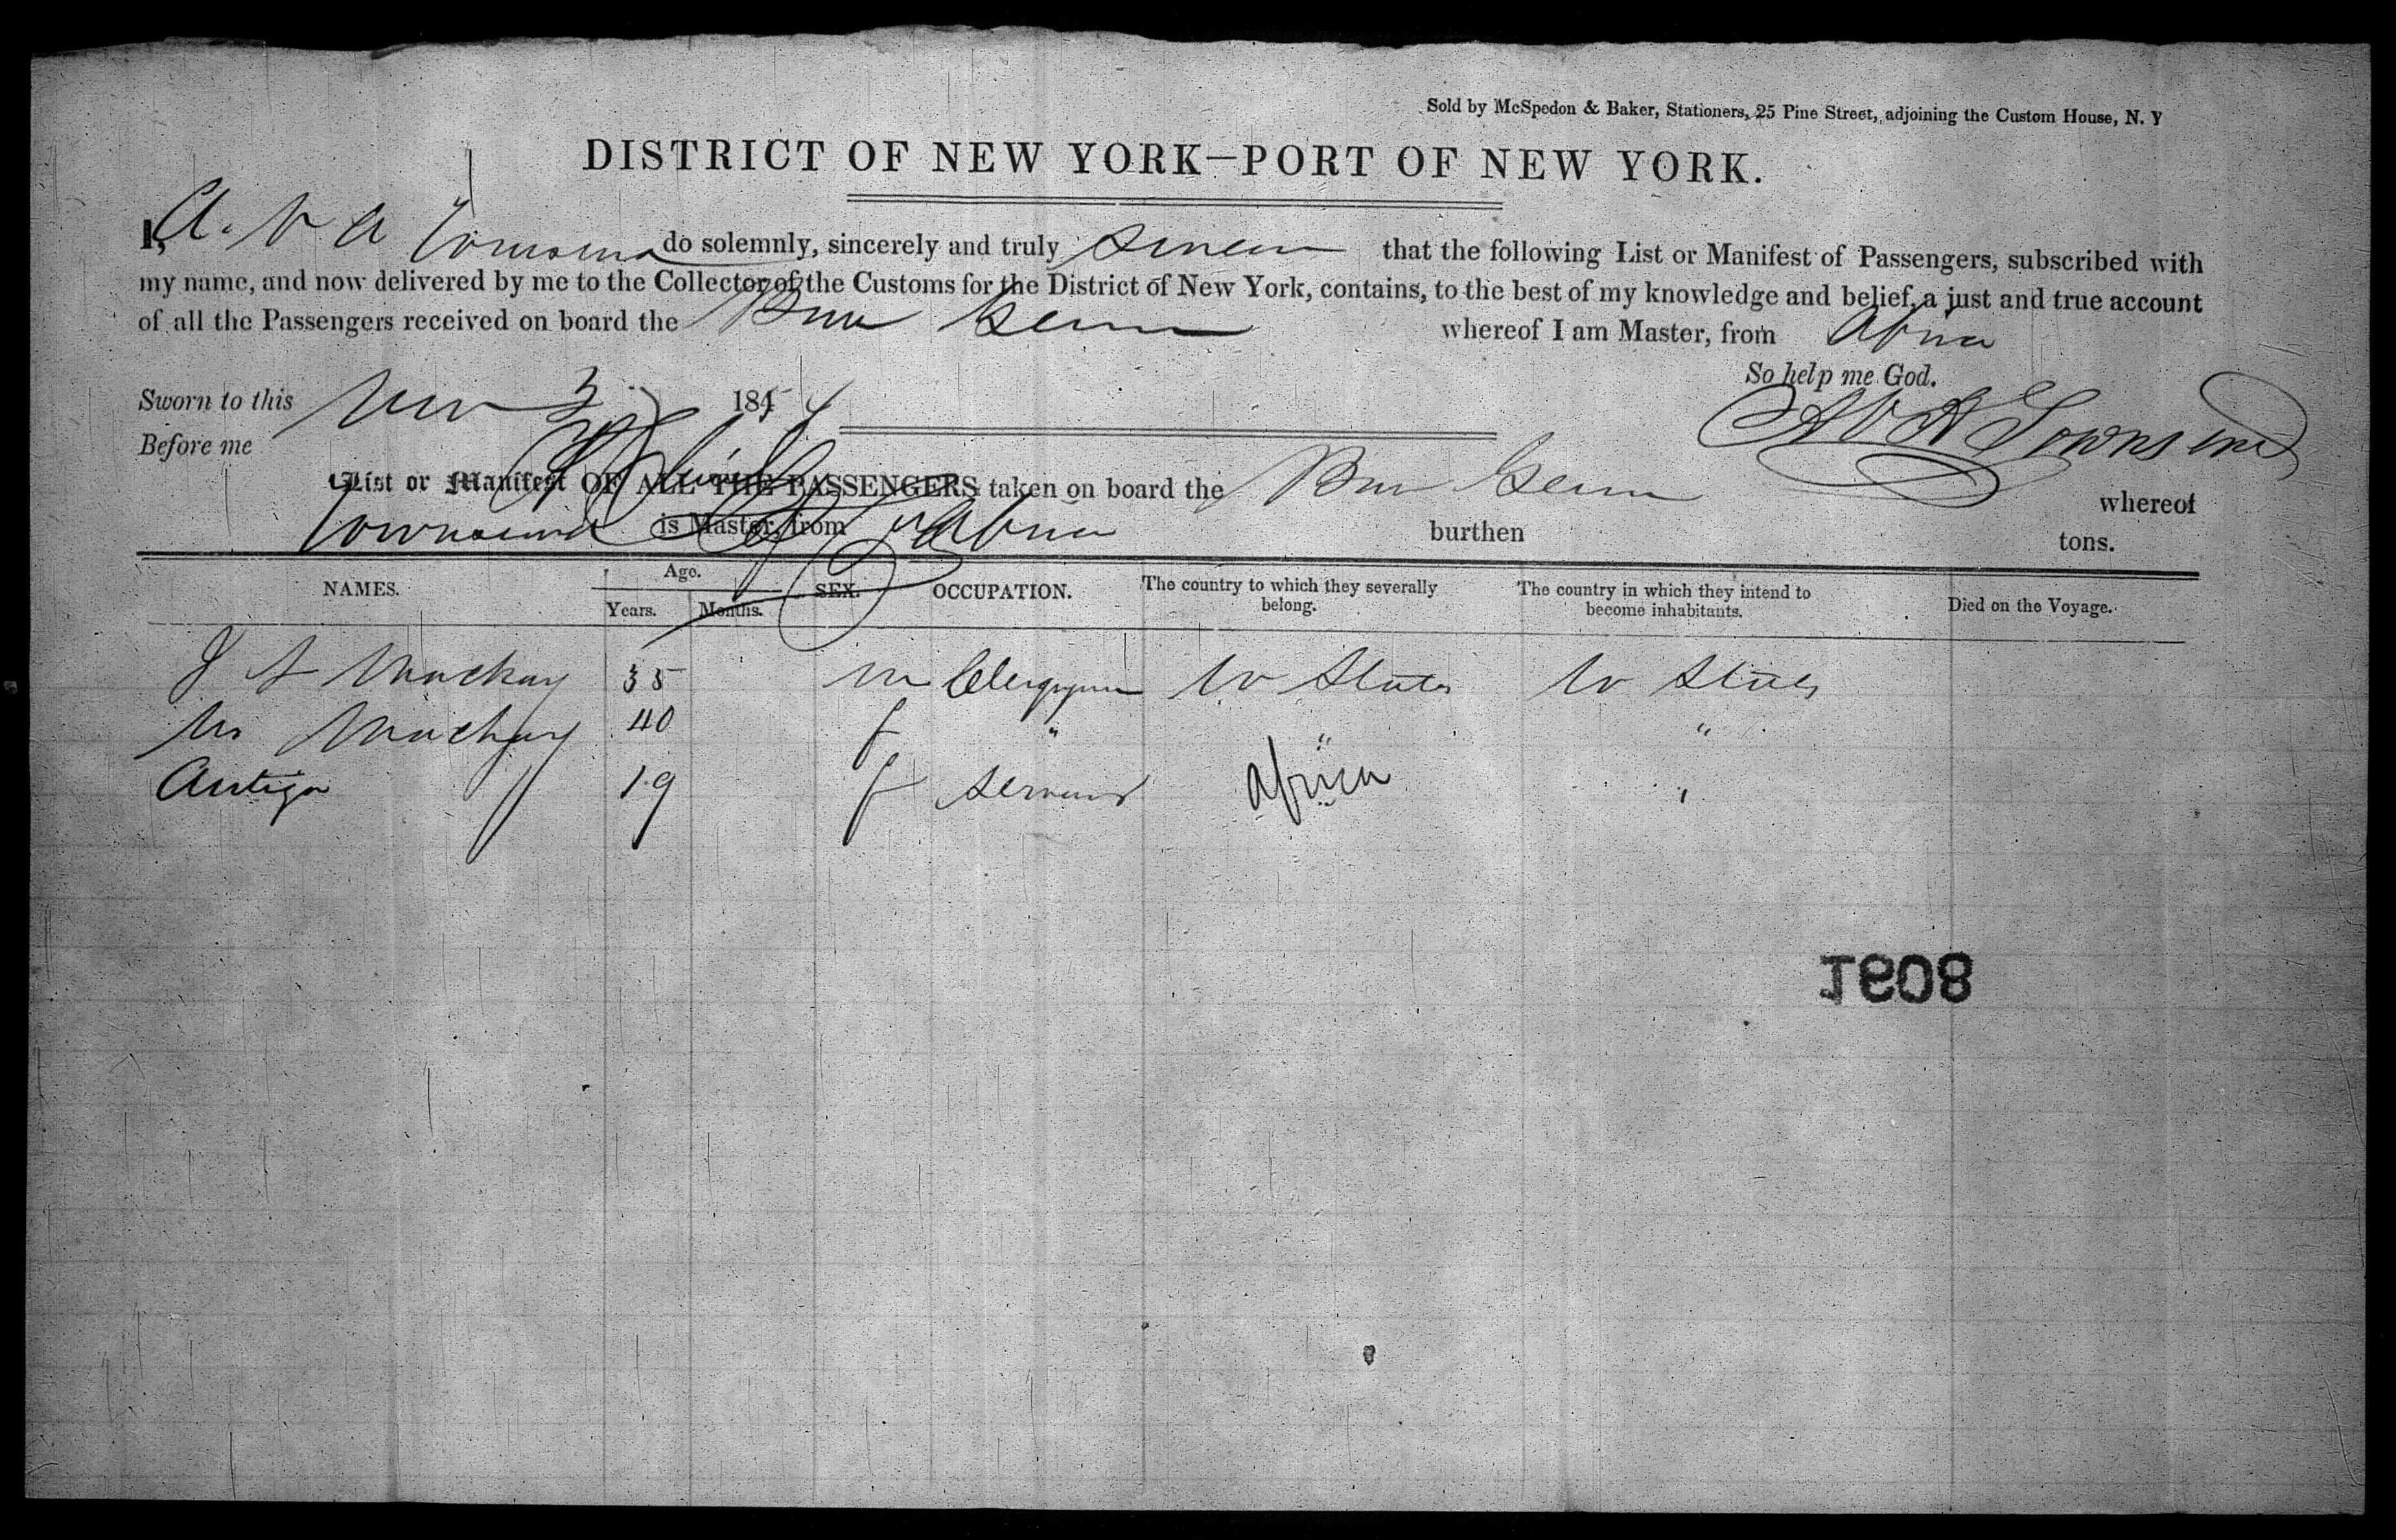 Sold by McSpedon & Baker, Stationers, 25 Pine Street, adjoining the Custom House, N. Y
DISTRICT OF NEW YORK—PORT OF NEW YORK.
I, A. V A Townsend do solemnly, sincerely and truly swear that the following List or Manifest of Passengers, subscribed with
my name, and now delivered by me to the Collector of the Customs for the District of New York, contains, to the best of my knowledge and belief, a just and true account
of all the Passengers received on board the whereof I am Master, from Africa
So help me God.
Sworn to this Nov 3 1854
A V A Townsend
Before me
List or Manifest OF ALL THE PASSENGERS taken on board the whereof
Townsend is Master, from Africa burthen tons.
NAMES. Age. Years. Months. SEX. OCCUPATION. The country to which they severally belong. The country in which they intend to become inhabitants. Died on the Voyage.
J A Mackay 35 m Clergyman U States U States
Mrs Mackay 40 f " " "
19 f Servant Africa "
1608